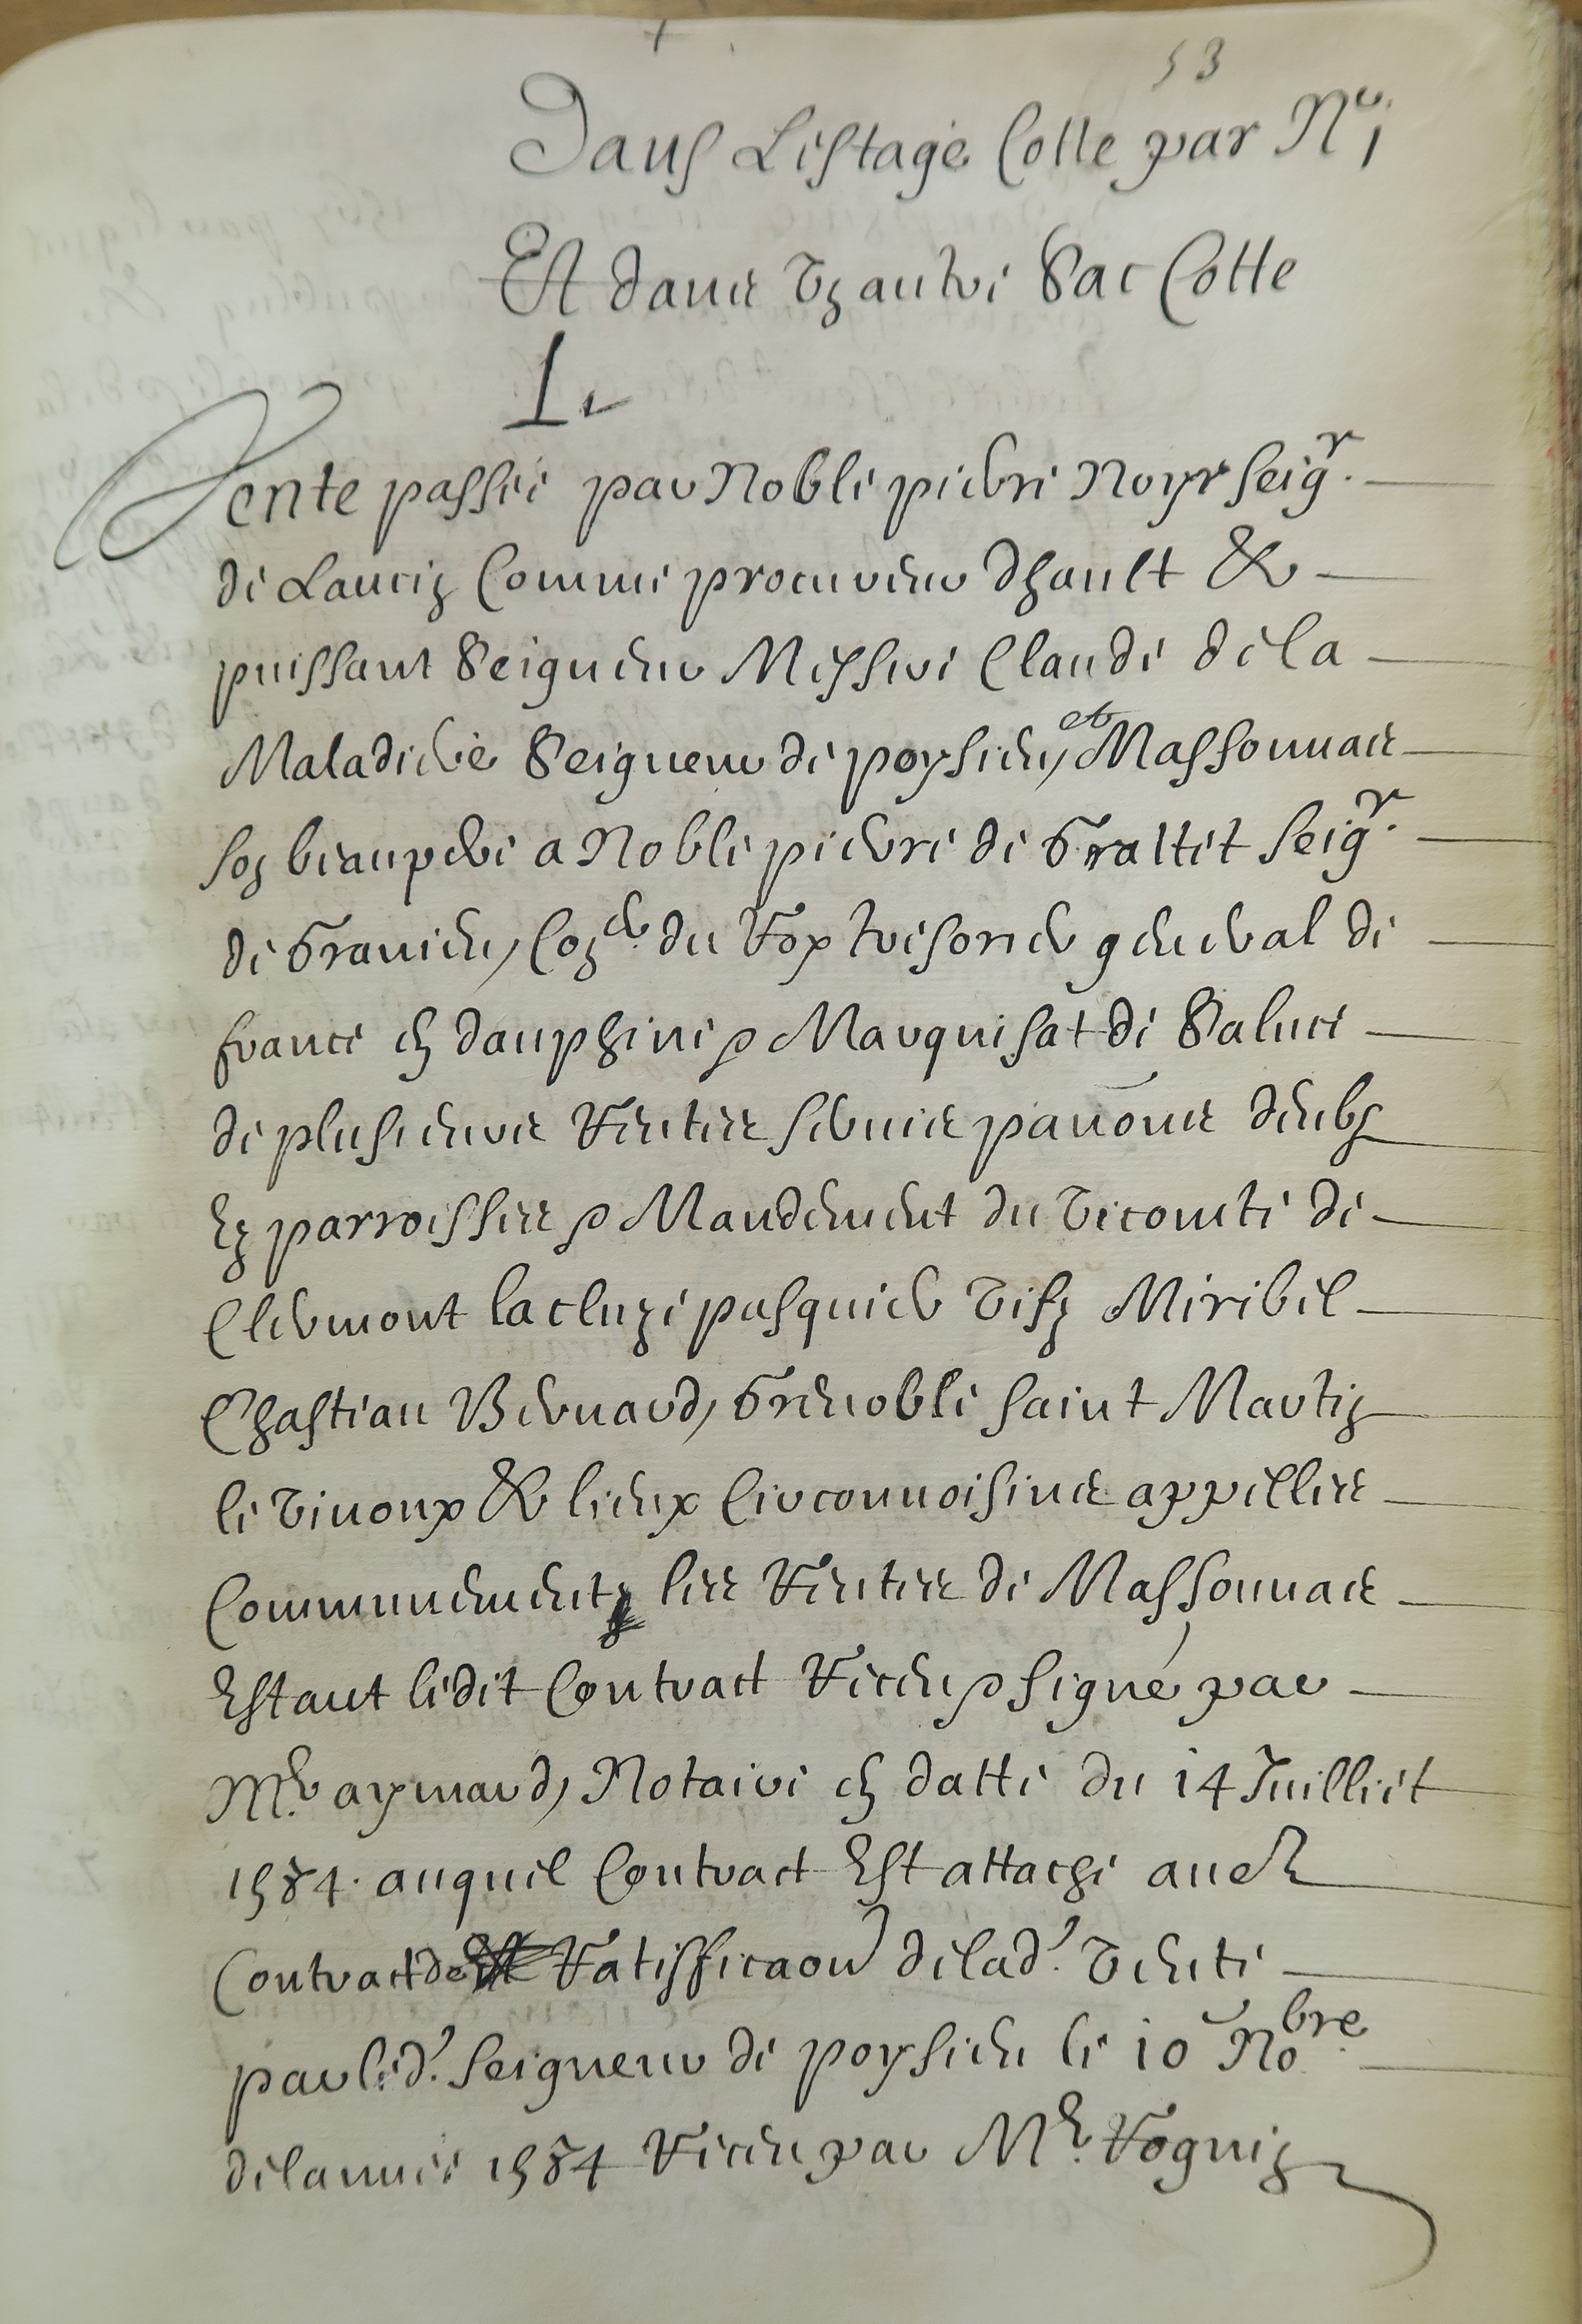 53
Dans Lestage Cotte par N° 1
Et dans Un autre Sac Cotte
I.
Vente passée par Noble pierre Noyr Seigr.
de Lancin Comme procureur dhault &
puissant Seigneur Messire Claude de la
Maladiere Seigneur de poysieu, et Massonnas
son beaupere a Noble pierre de Grattet Seigr.
de Granieu, Coner. du Roy tresorier general de
france en dauphine & Marquisat de Saluce
de plusieurs Rentes servis panōns deubz
Ez parroisses & Mandement du Vicomté de
Clermont la cluze pasquier Vif Miribel
Chasteau Bernard, Grenoble saint Martin
le Vinoux & lieux Circonvoisins appellees
Communement les Rentes de Massonnas
Estant ledit Contract Receu & signé par
Mr. aymard, Notaire en datte du 14 Juilliet
1584. auquel Contract Est attaché autre
Contract de Ratifficaon de lad. Vente
par led. Seigneur de poysieu le 10 Nobre.
de lannée 1584 Receu par Me. Roguin